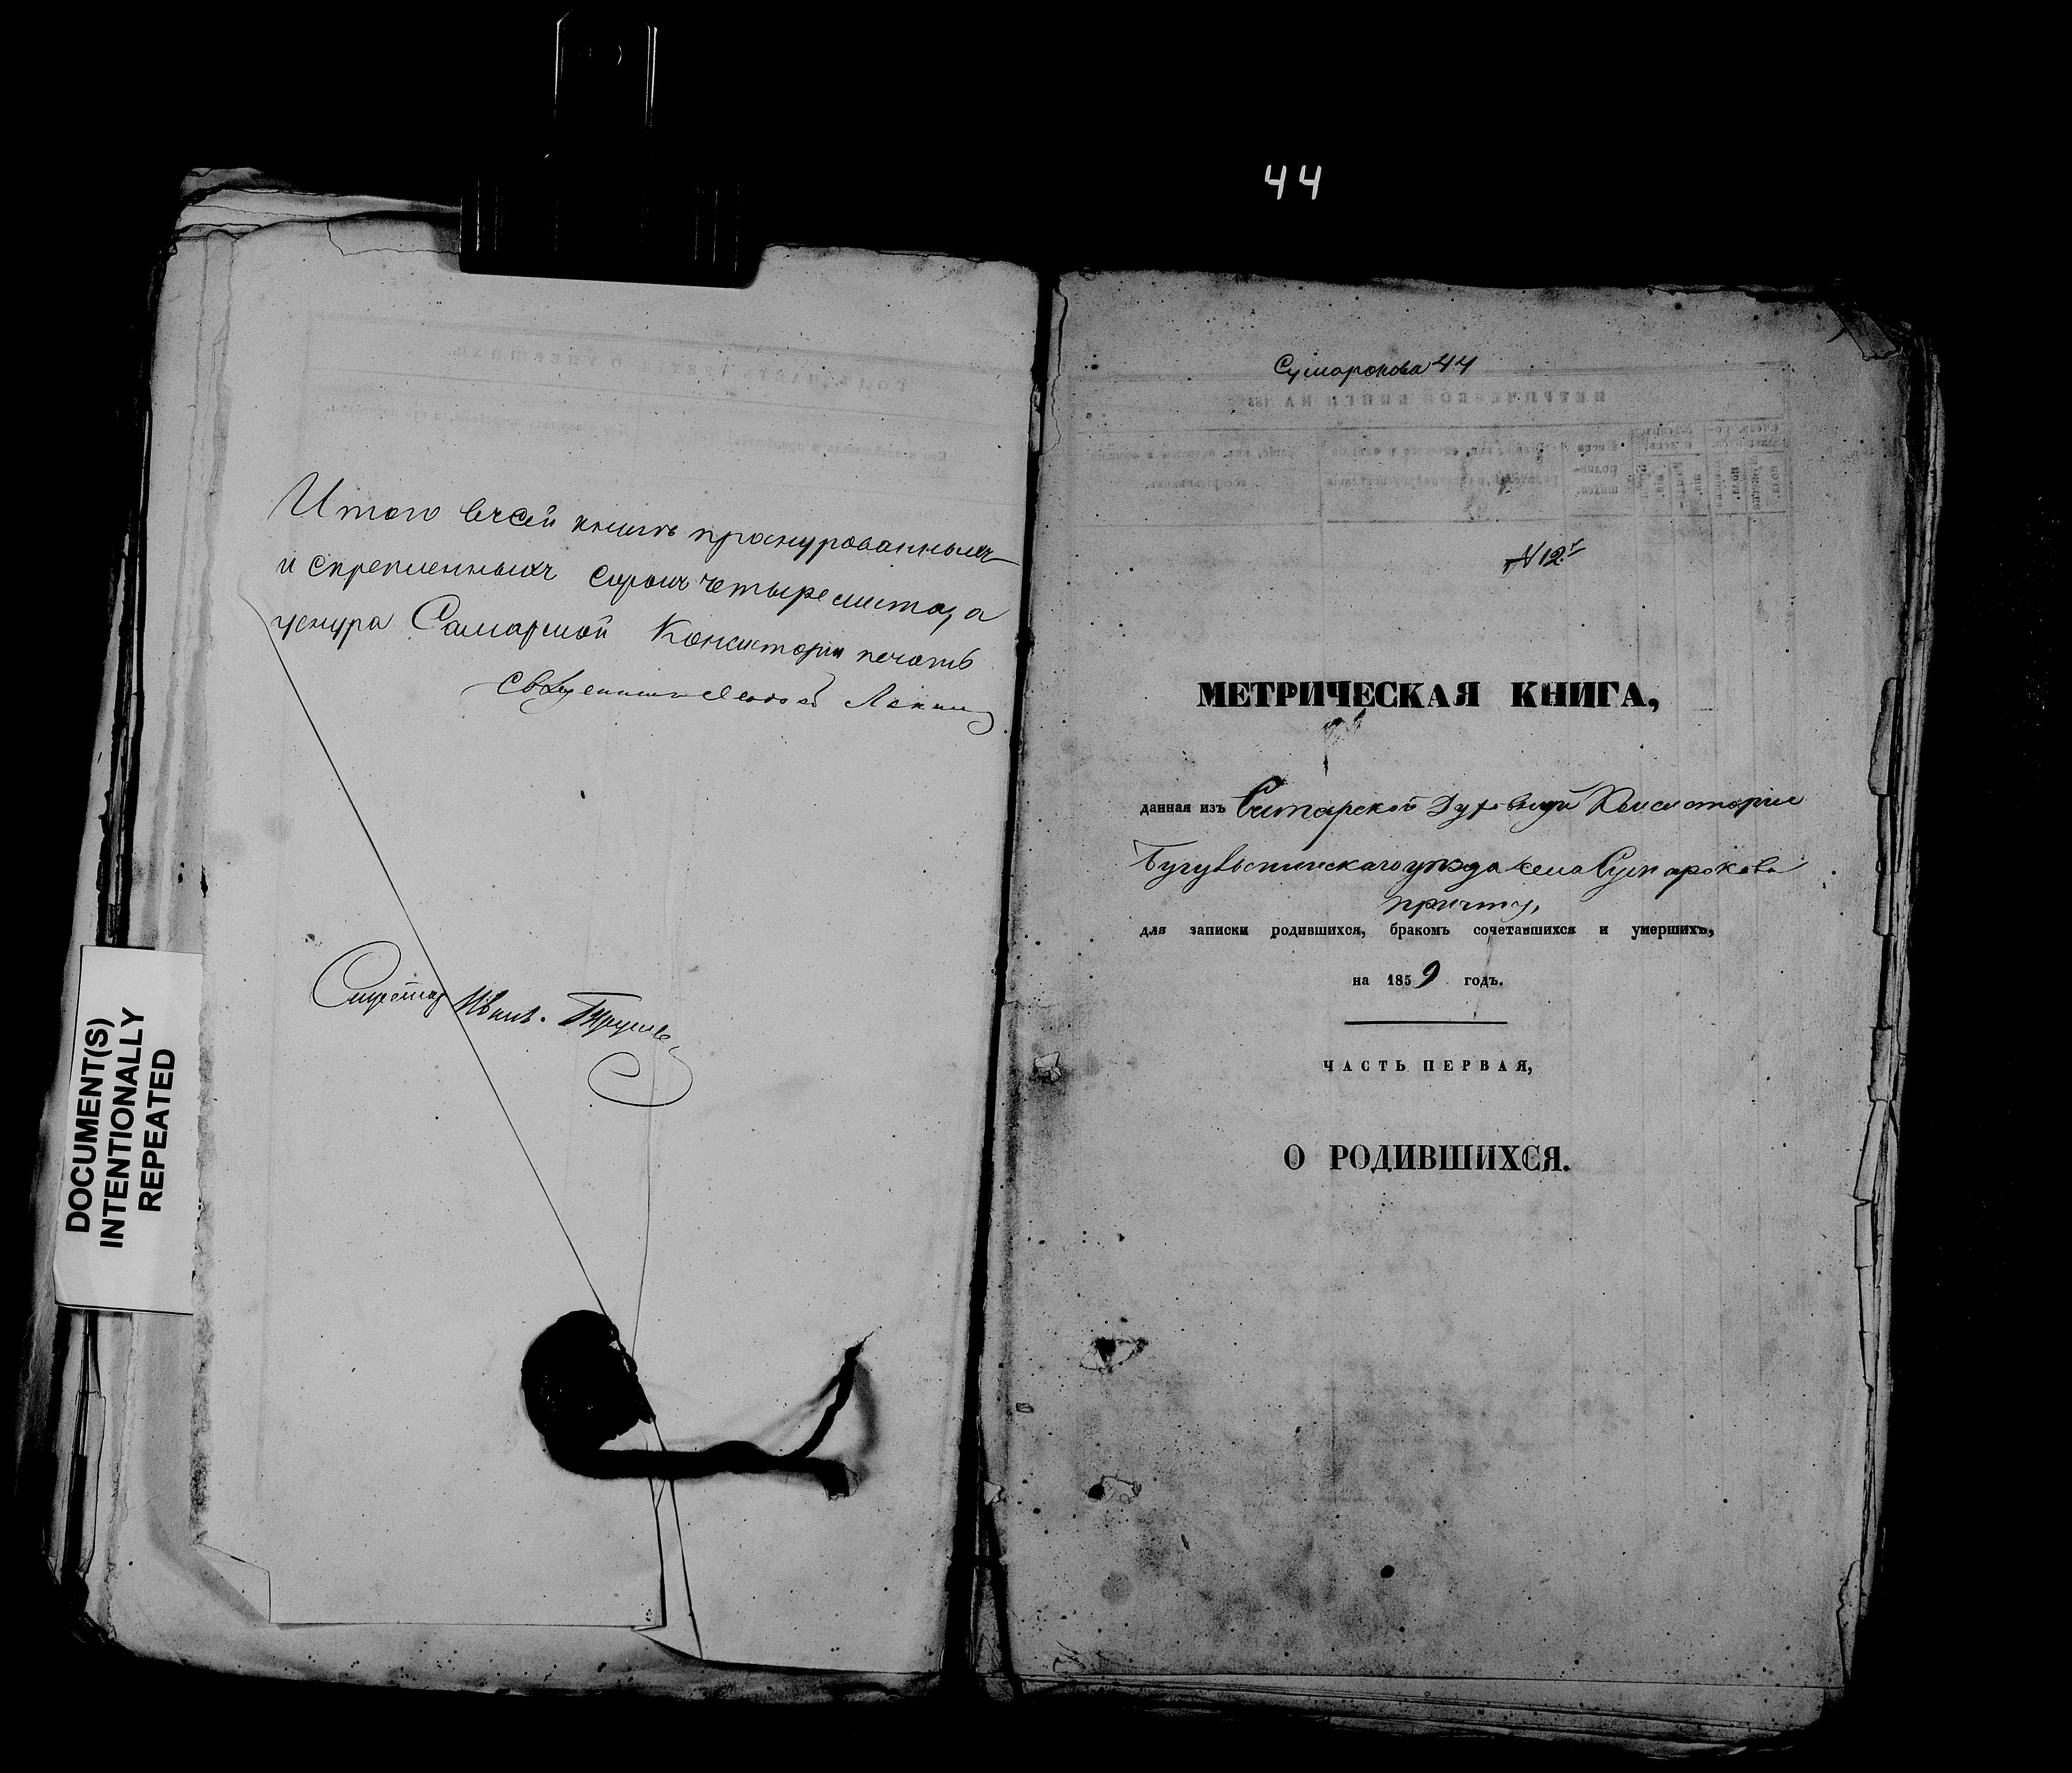 44
Итого всей книги прошнурованныхъ
и скрепленныхъ сорокъ четыре листа, а
у шнура Самарской Консисторіи печать
Священникъ
Секретарь Иванъ
DOCUMENT(S)
INTENTIONALLY
REPEATED
Сумарокова 44
N 12.
МЕТРИЧЕСКАЯ КНИГА,
данная изъ Самарской Духовной Консисторіи
Бугульминскаго уѣзда села Сумарокова
причту,
для записки родившихся, бракомъ сочетавшихся и умершихъ,
на 1859 годъ.
ЧАСТЬ ПЕРВАЯ,
О РОДИВШИХСЯ.